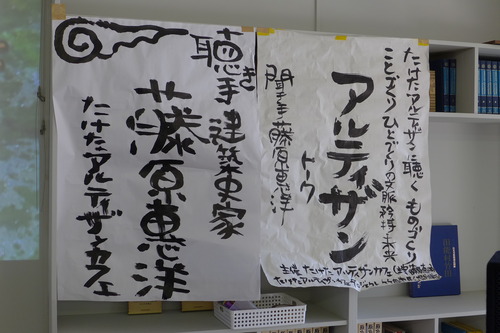 聴き手
建築史家
藤原惠洋
たけたアルティザンカフェ
たけたアルティザンに聴く ものづくり
ことづくり ひとづくりの文脈 矜持 未来
アルティザン
トーク
聞き手 藤原惠洋
主催 たけたアルティザンカフェ